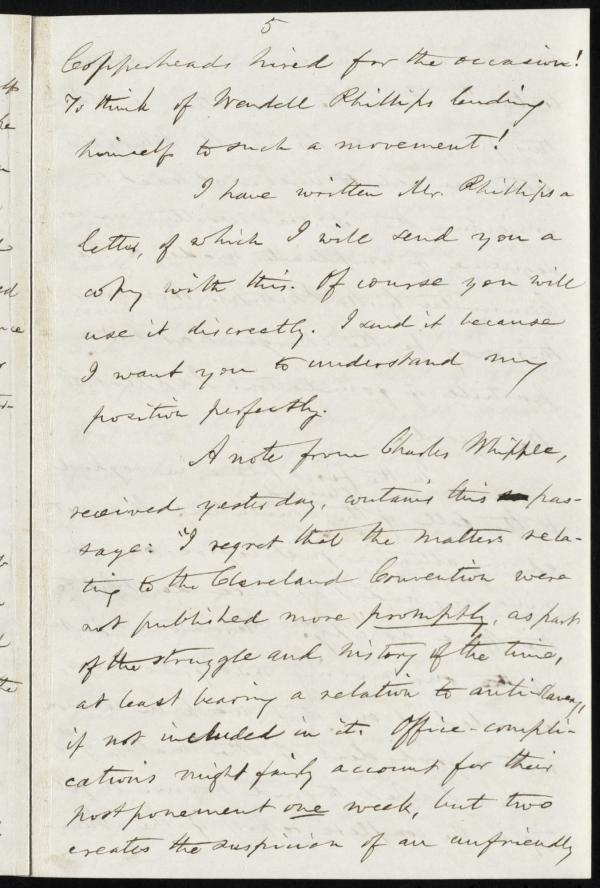 5
Copperheads hired for the occasion!
To think of Wendell Phillips lending
himself to such a movement!
I have written Mr. Phillips a
letter, of which I will send you a
copy with this. Of course you will
use it discreetly. I send it because
I want you to understand my
position perfectly.
A note from Charles Whipple,
received yesterday, contains this pas-
sage: "I regret that the matters rela-
ting to the Cleveland Convention were
not published more promptly, as part
of the struggle and history of the time,
at least bearing a relation to anti-slavery,
if not included in it. Office-compli-
cations might fairly account for their
postponement one week, but two
creates the suspicion of an unfriendly